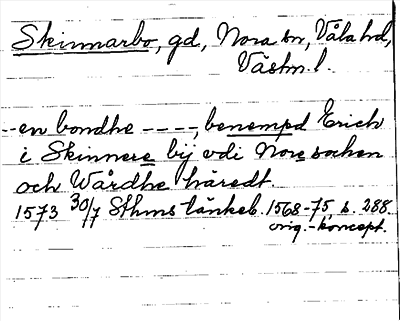 Skinnarbo, gd, Nora sn, Våla hd,
Västm. l.
--en bondhe ----, benempd Erich
i Skinnere bij vdi Nore sochen
och Wårdhe häredt.
1573 30/7 Sthms tänkeb. 1568-75, s. 288
orig.-koncept.